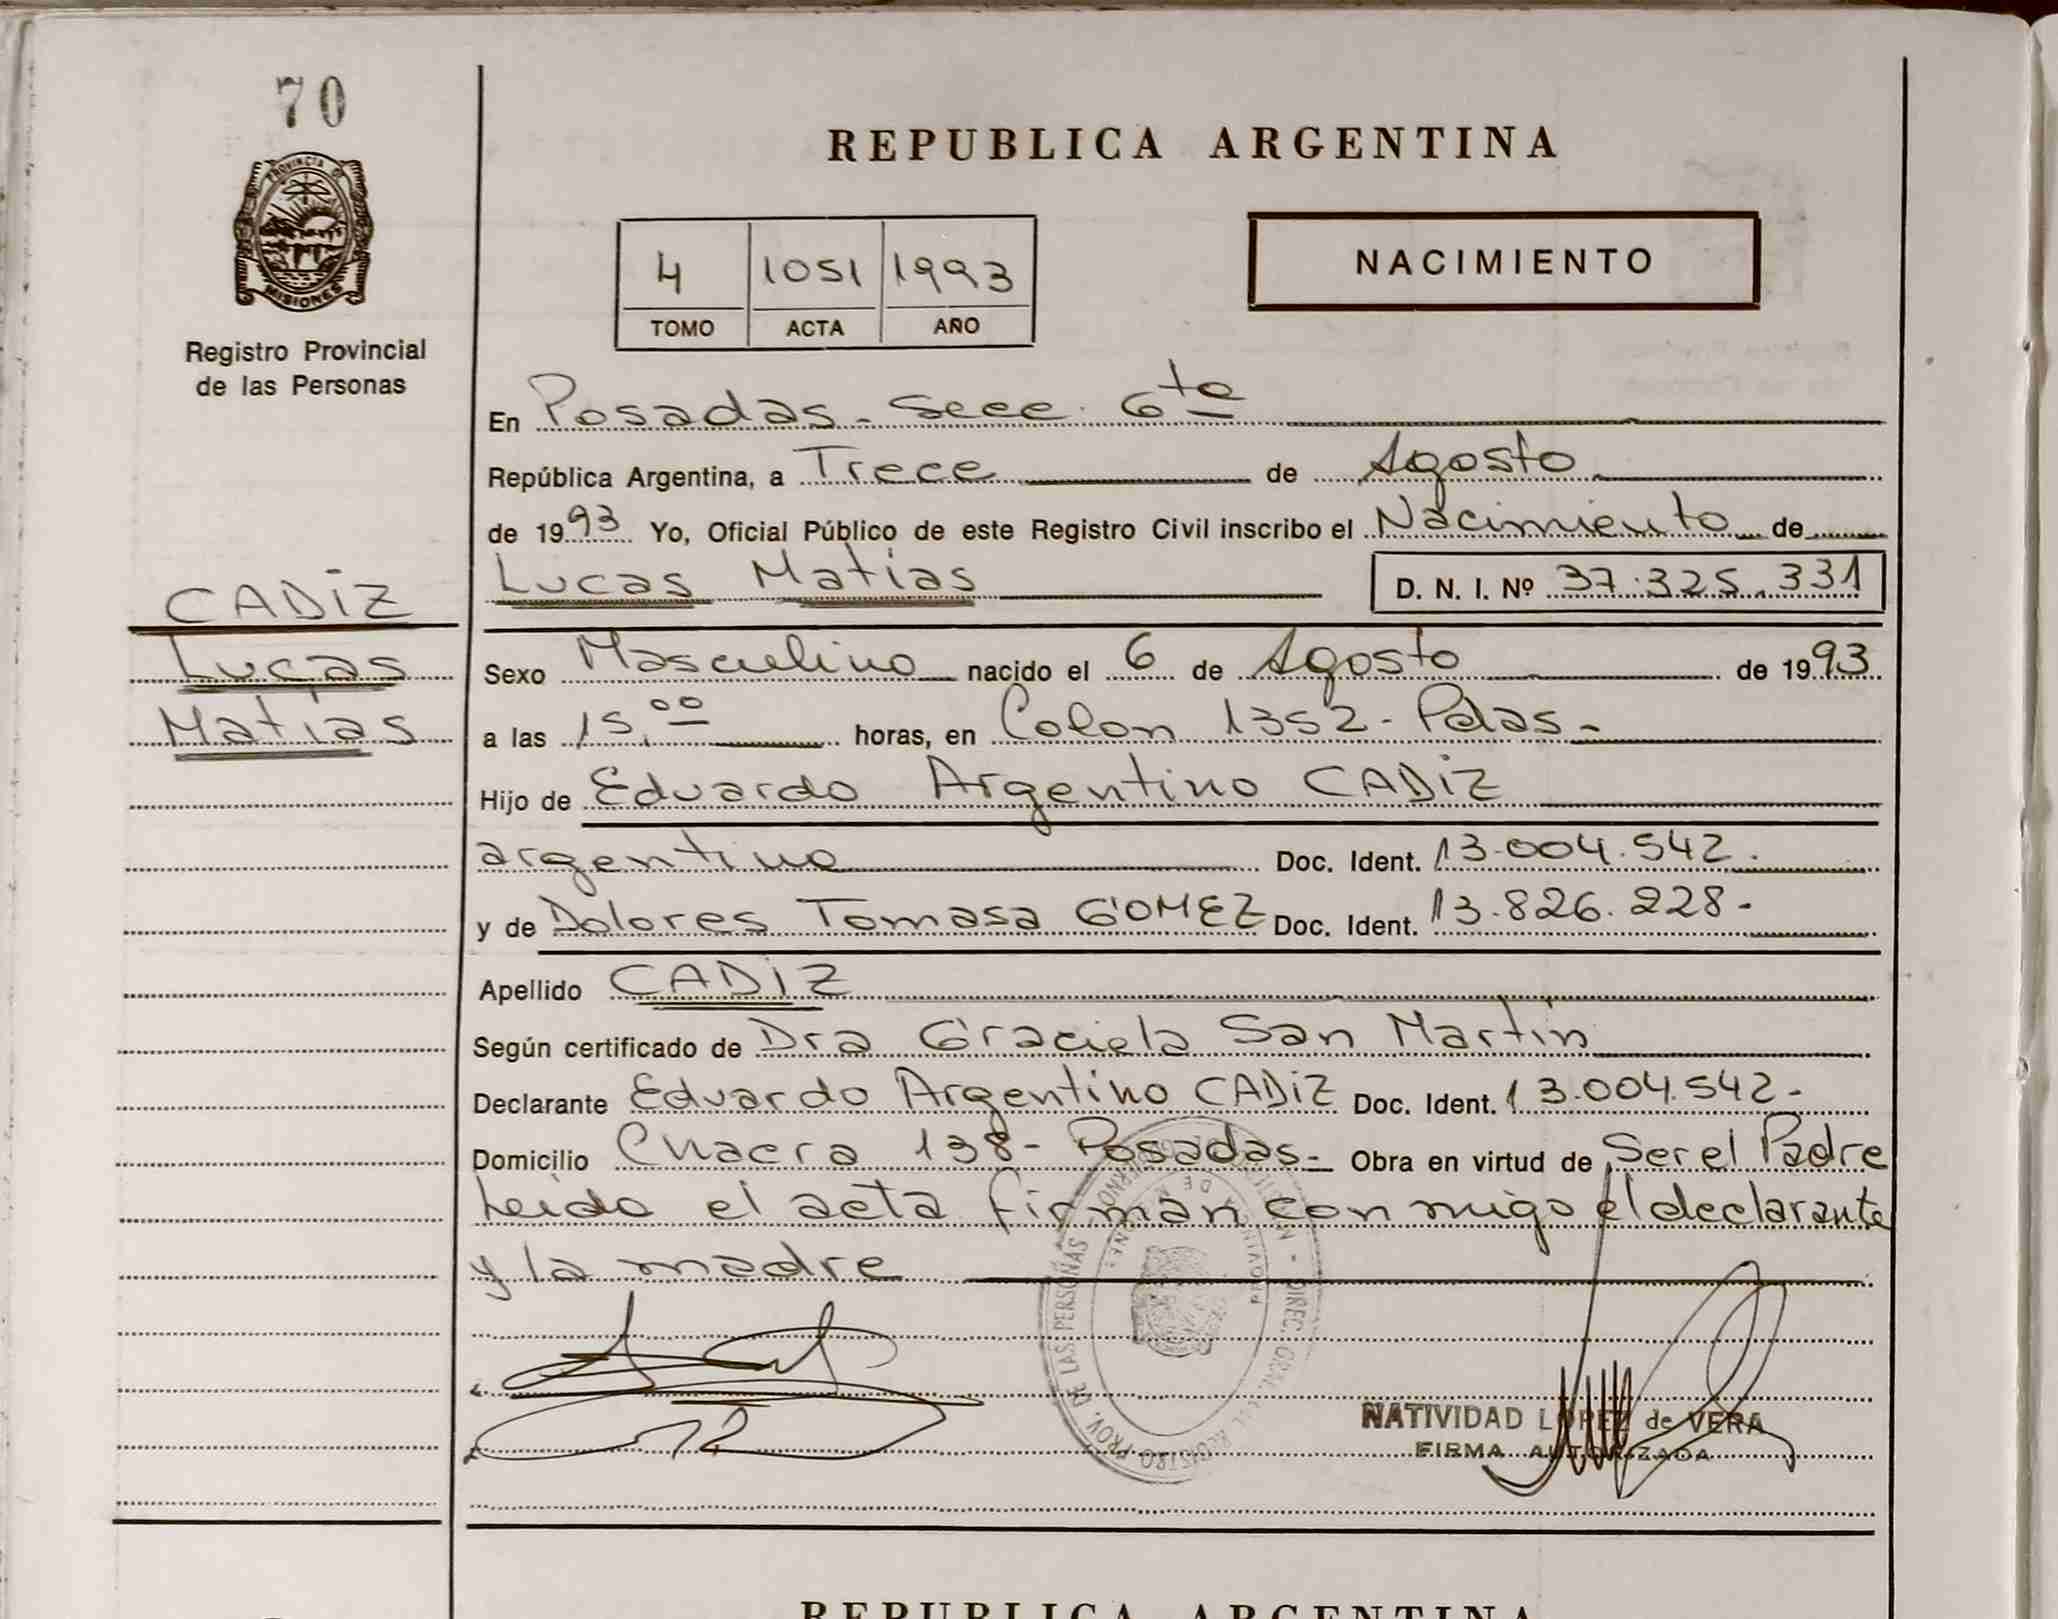 70
PROVINCIA DE
MISIONES
Registro Provincial
de las Personas
REPUBLICA ARGENTINA
4 1051 1993
TOMO ACTA AÑO
NACIMIENTO
En Posadas - Secc. 6ta
República Argentina, a Trece de Agosto
de 1993 Yo, Oficial Público de este Registro Civil inscribo el Nacimiento de
Lucas Matias D. N. I. Nº 37.325.331
CADiZ
Lucas
Matias
Sexo Masculino nacido el 6 de Agosto de 1993
a las 15,00 horas, en Colon 1352 - Pdas -
Hijo de Eduardo Argentino CADiZ
argentino Doc. Ident. 13.004.542.
y de Dolores Tomasa GOMEZ Doc. Ident. 13.826.228-
Apellido CADIZ
Según certificado de Dra Graciela San Martin
Declarante Eduardo Argentino CADiZ Doc. Ident. 13.004.542-
Domicilio Chacra 138 - Posadas - Obra en virtud de Ser el Padre
Leido el acta firman con migo el declarante
y la madre
DIREC. GRAL. DEL REGISTRO PROV. DE LAS PERSONAS
NATIVIDAD LOPEZ de VERA
FIRMA AUTORIZADA
REPUBLICA ARGENTINA